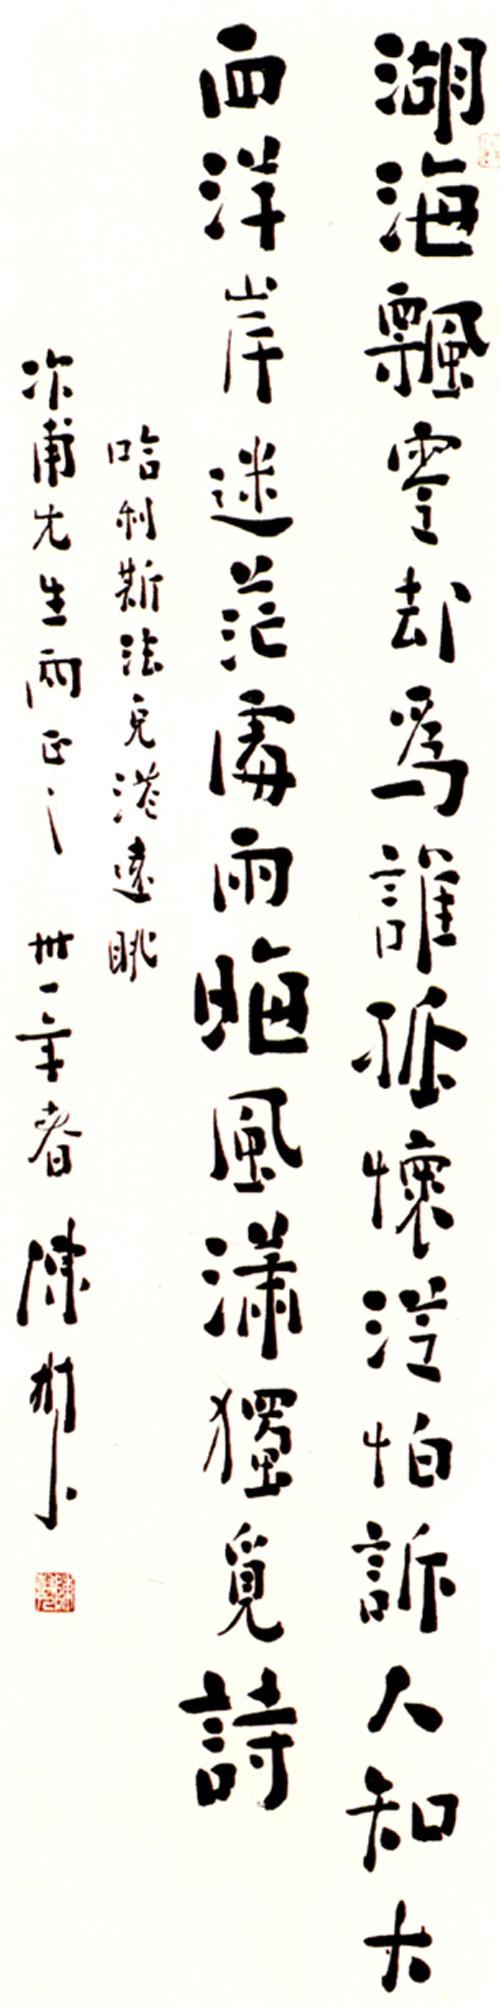 湖海飄零却爲誰孤懷從怕訴人知大
西洋岸迷茫處雨晦風瀟獨覓詩
哈利斯法克港遠眺
次甫先生兩正之 卅一年春 陳樹人